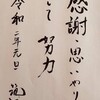 感謝・思いや
して 努力
令和二年元旦